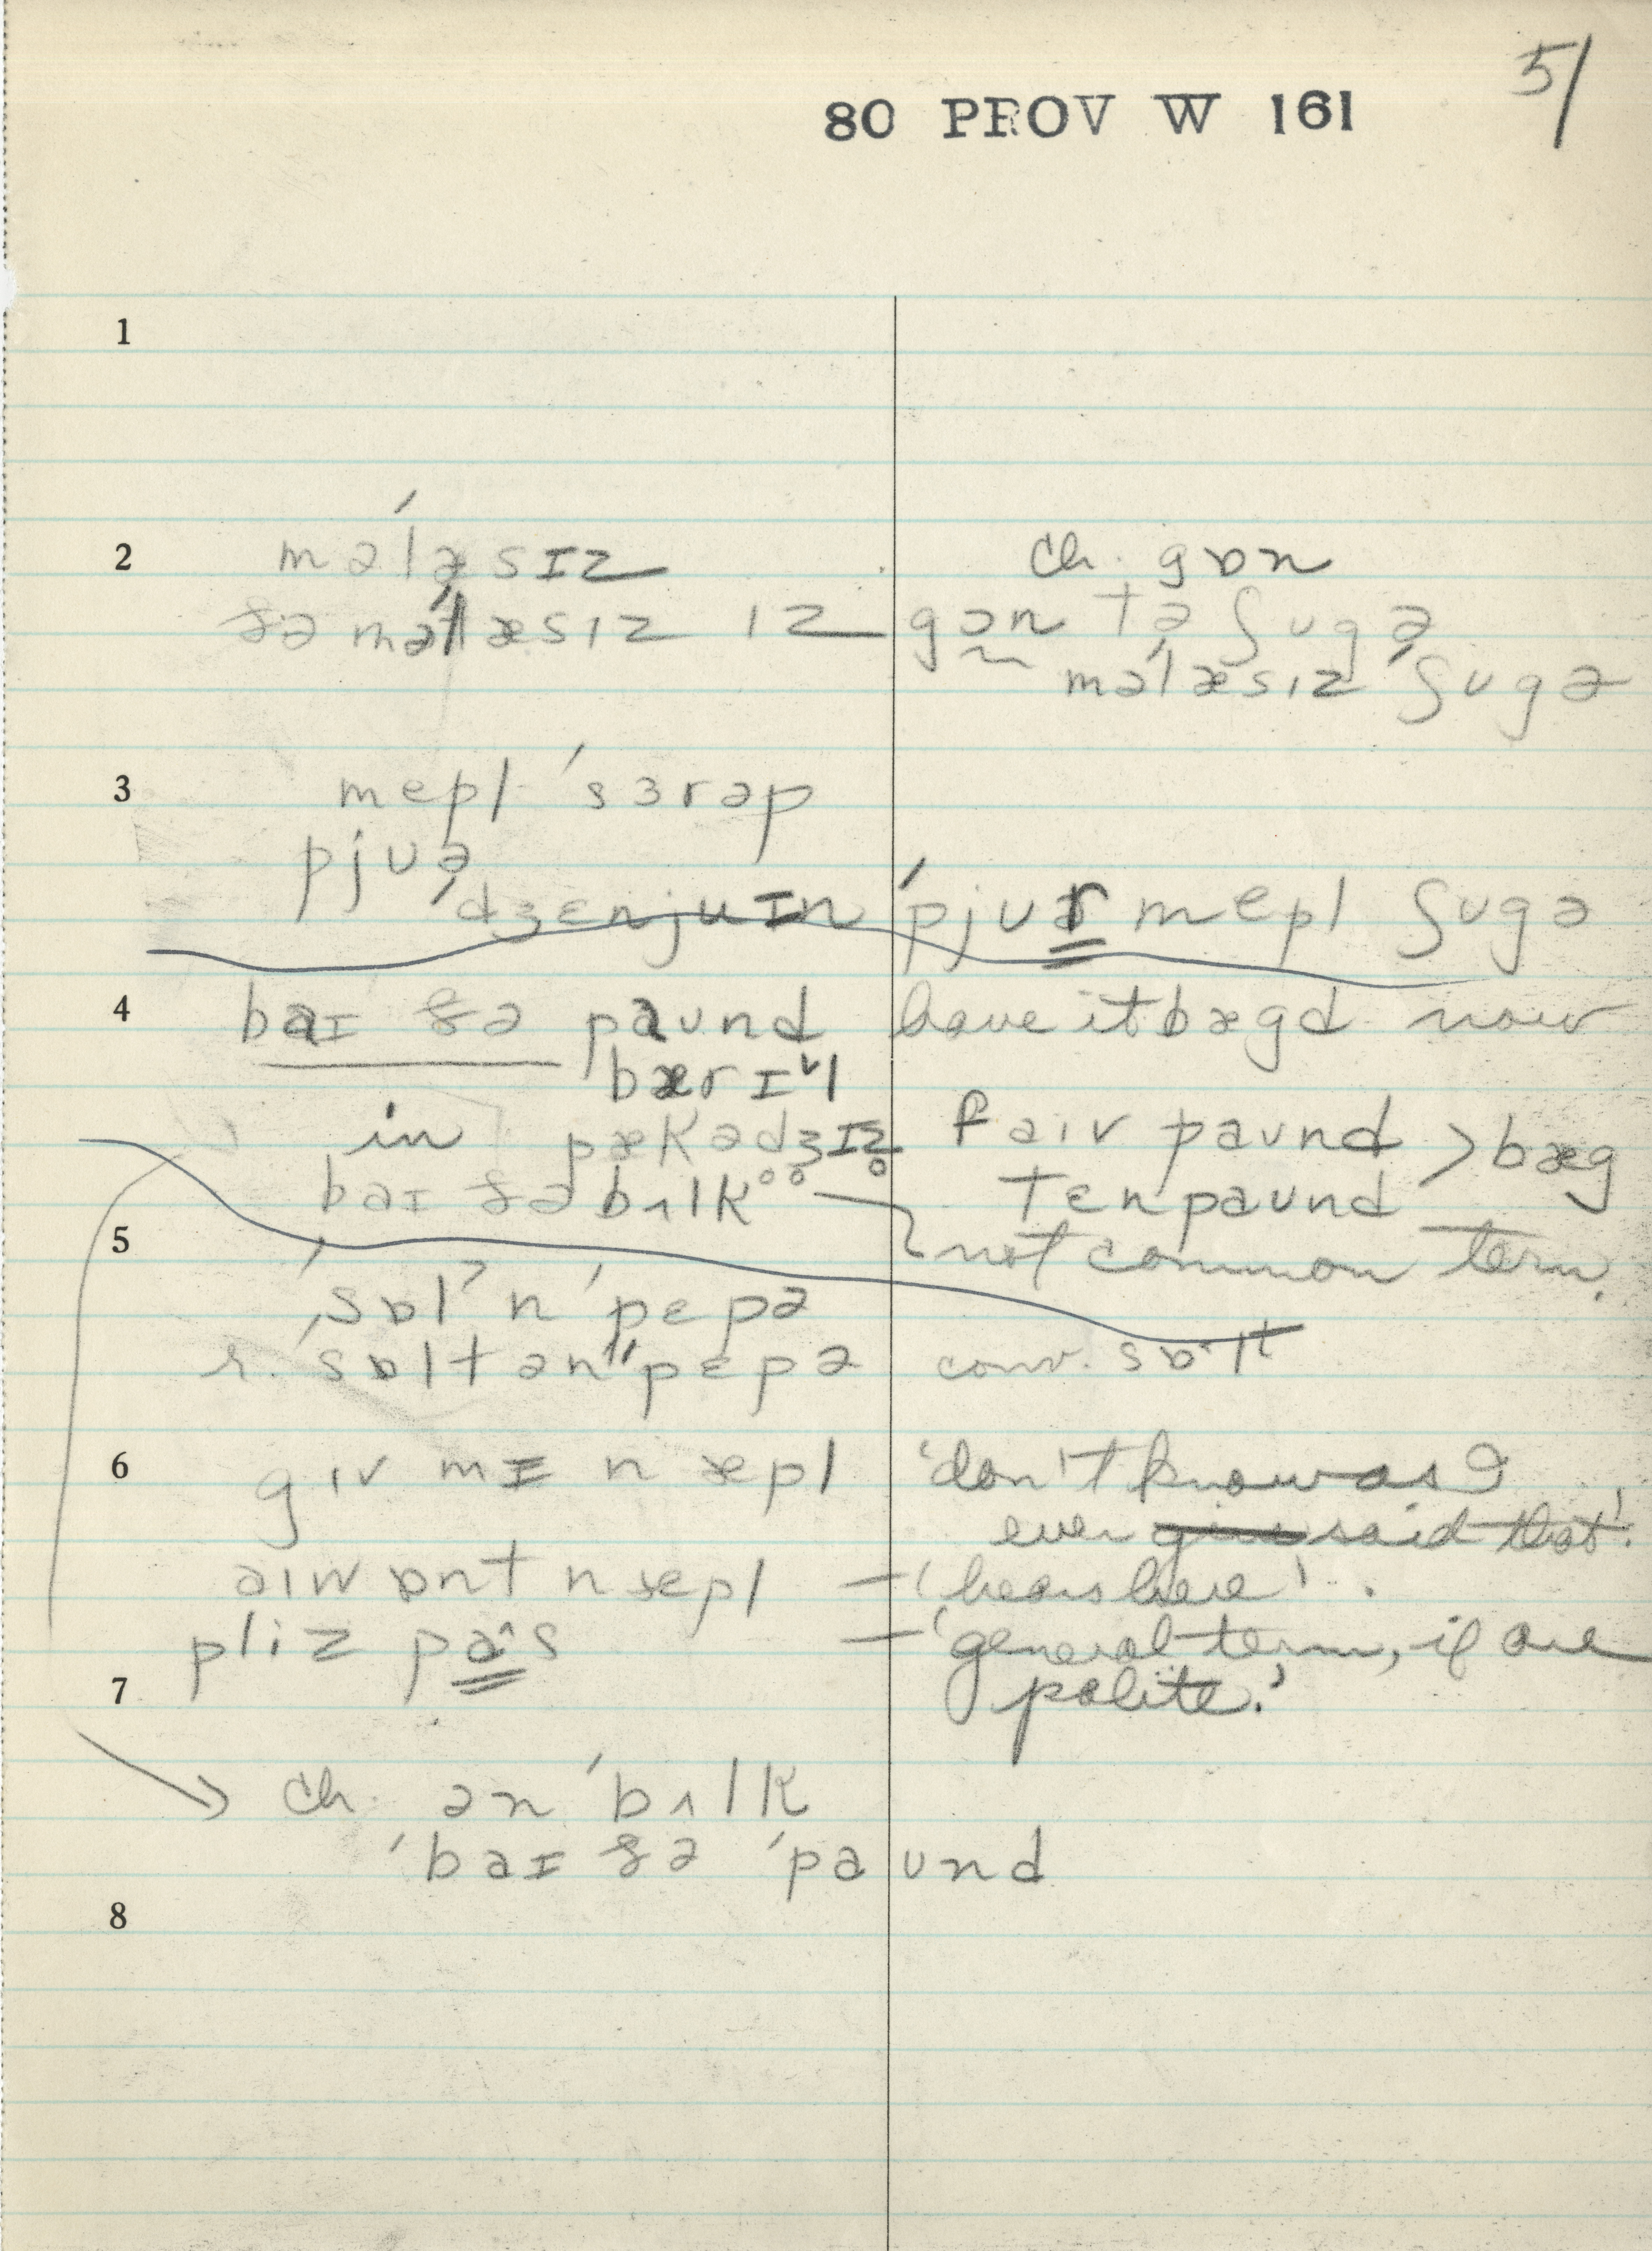 51
80 PROV W 161
1
2 məˈlæsɪz ch. gɒn
ðə məˈlæsɪz ɪz gɒn tə ʃugə
məˈlæsɪz ˈʃugə
3 mepl ˈsɜrəp
pjuə
ˈdʒɛnjuɪn ˈpjuər mepl ʃugə
4 baɪ ðə paund have it bægd now
bærɪl
in pækədʒɪz faɪv paund > bæg
baɪ ðə bʌlk°° ten paund
5 not common term.
ˈsɒlt n ˈpɛpə
r. ˈsɒlt ən ˈpɛpə conv. sɒlt
6 gɪv mɪ n æpl 'don't know as I
ever said that!'
aɪ wɒnt n æpl – 'hears here'.
pliz pa^s – 'general term, if one
7 polite.'
ch. ən ˈbʌlk
ˈbaɪ ðə ˈpaund
8